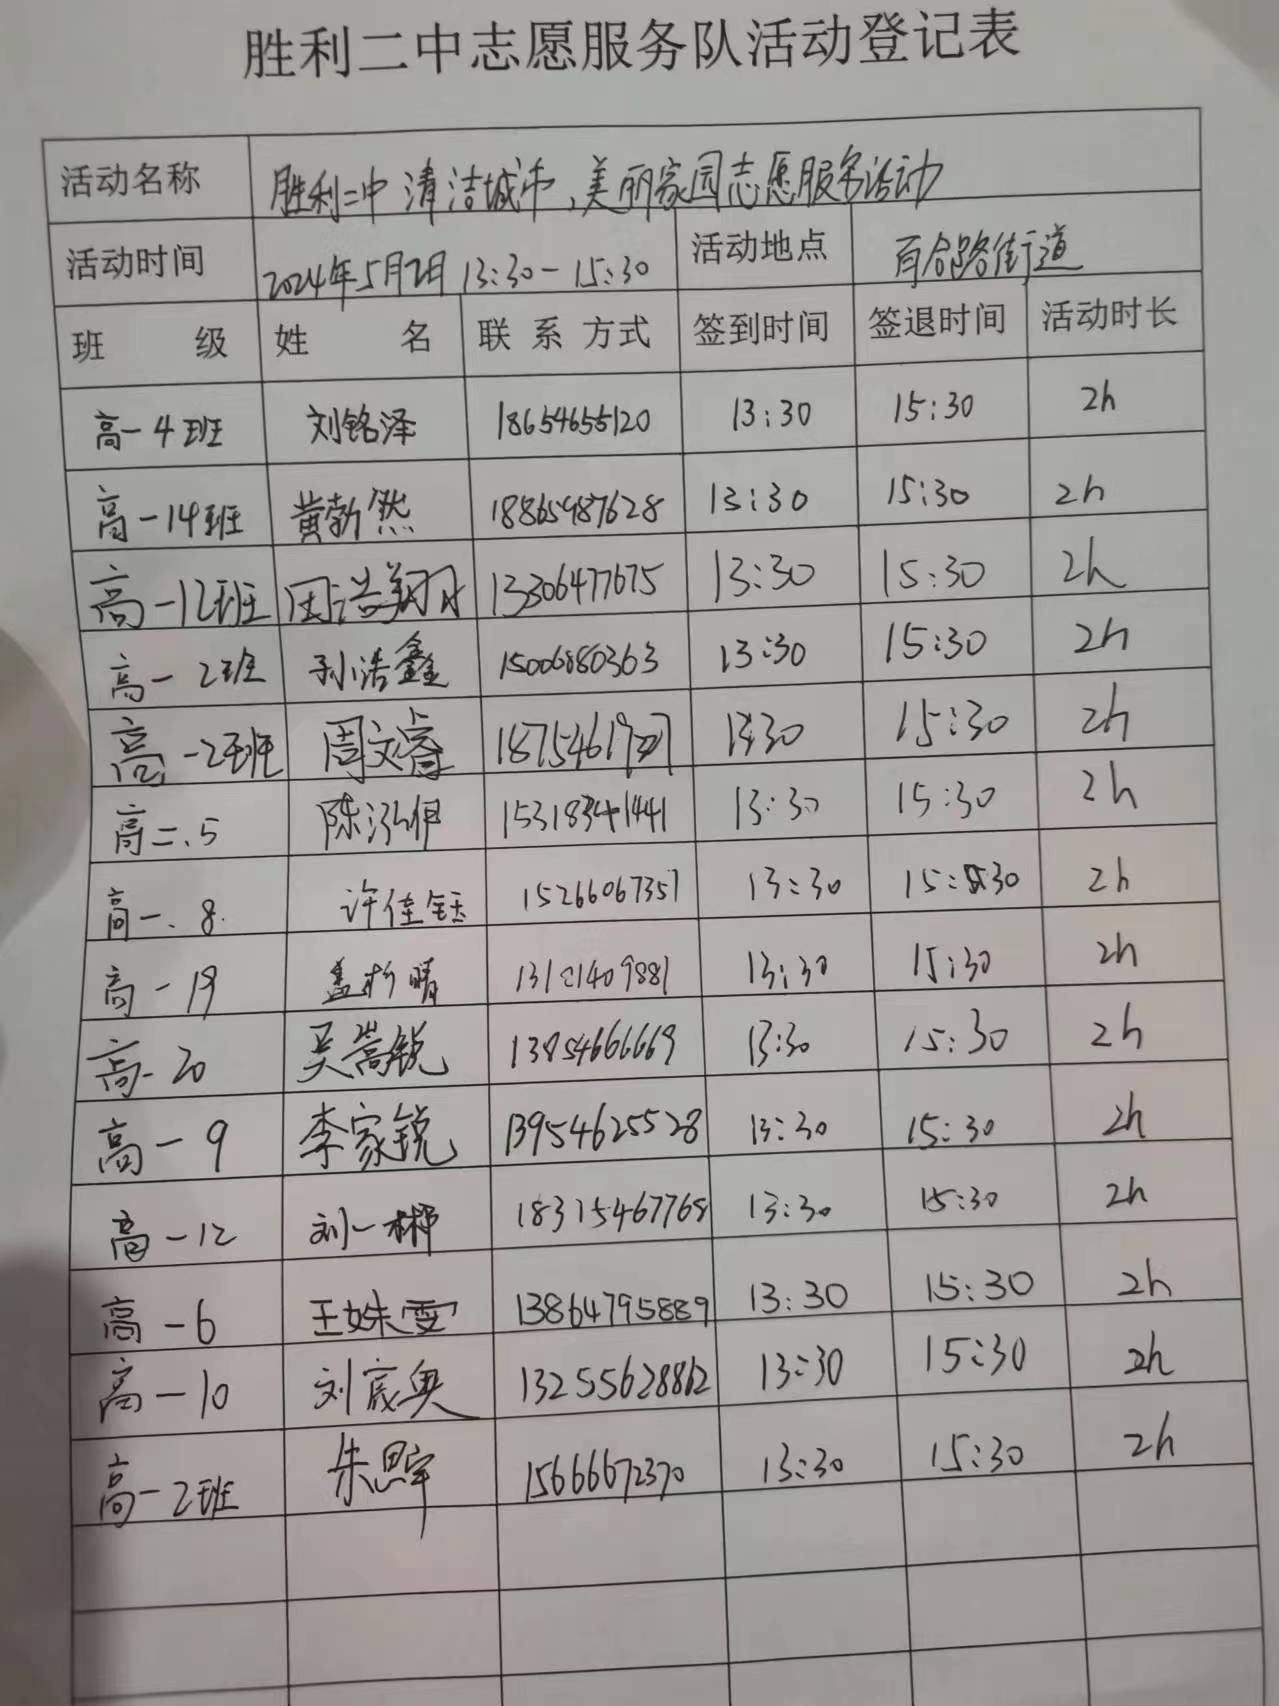 胜利二中志愿服务队活动登记表
活动名称 胜利二中 清洁城市,美丽家园志愿服务活动
活动时间 2024年5月2日 13:30-15:30 活动地点 百合路街道
班 级 姓 名 联系方式 签到时间 签退时间 活动时长
高一4班 刘铭泽 18654655120 13:30 15:30 2h
高一14班 黄勃然 18865987628 13:30 15:30 2h
高一12班 田浩翔 13306477675 13:30 15:30 2h
高一2班 孙浩鑫 15006880363 13:30 15:30 2h
高一2班 周文睿 13:30 15:30 2h
高二.5 陈泓伊 15318341441 13:30 15:30 2h
高一.8. 许佳钰 15266067357 13:30 15:30 2h
高一19 13:30 15:30 2h
高一20 吴嵩锐 13854666669 13:30 15:30 2h
高一9 李家锐 13954625528 13:30 15:30 2h
高一12 刘一彬 18315467768 13:30 15:30 2h
高一6 王姝雯 13864795889 13:30 15:30 2h
高一10 刘宸奥 13255628862 13:30 15:30 2h
高一2班 朱思宇 15666672370 13:30 15:30 2h